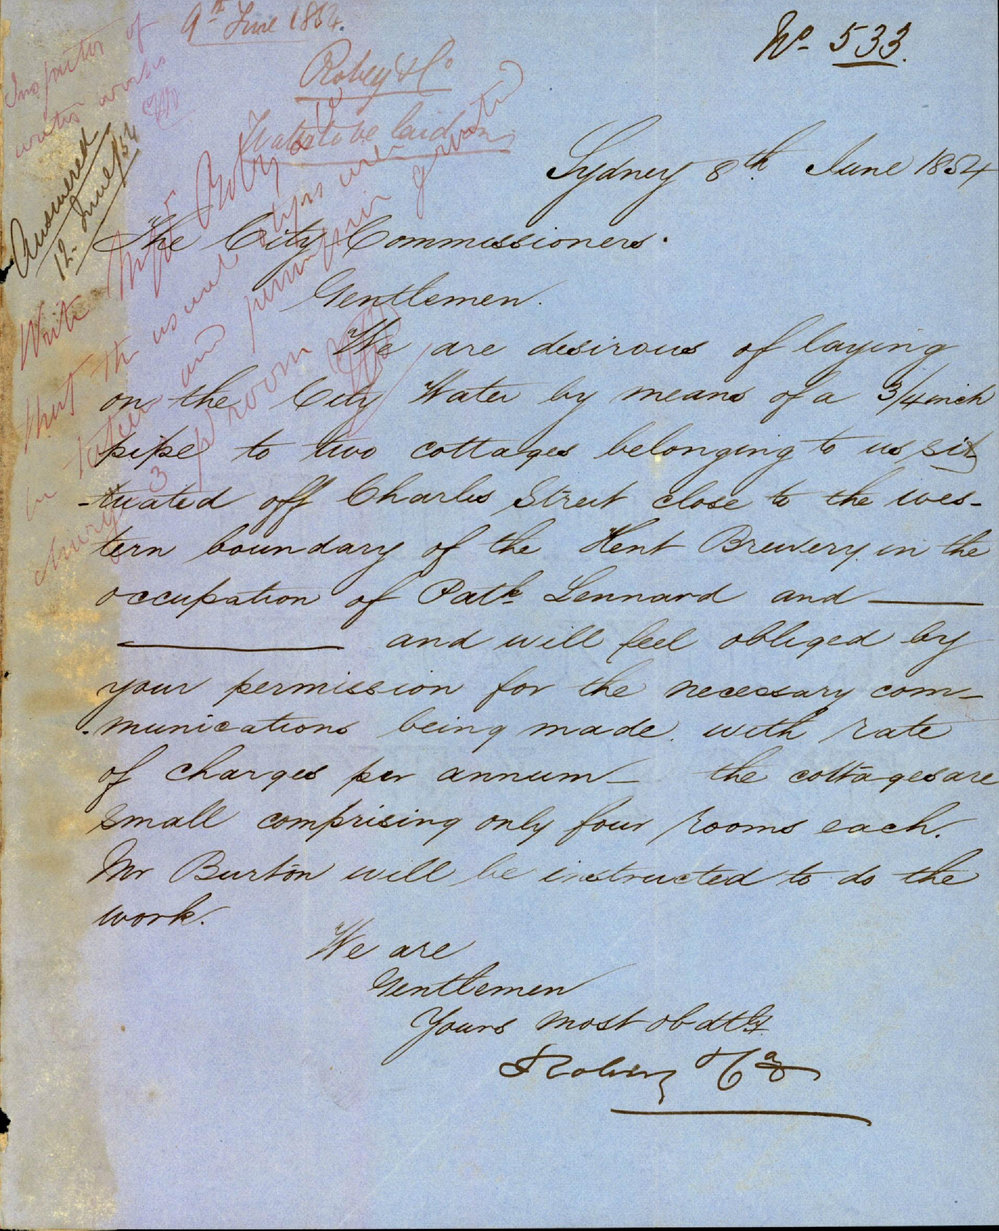 No. 533.
9th June 1854.
Inspector of
water works
Robey & Co
Water to be laid on
Answered
12 June/54
Write Messrs Robey & Co
that the usual steps were
taken and permission granted
3 p room
Sydney 8th June 1854
The City Commissioners.
Gentlemen.
We are desirous of laying
on the City Water by means of a 3/4 inch
pipe to two cottages belonging to us sit
-tuated off Charles Street close to the wes-
tern boundary of the Kent Brewery in the
occupation of Patk Lennard and ———
——— and will feel obliged by
your permission for the necessary com-
-munications being made. with rate
of charges per annum — the cottages are
small comprising only four rooms each.
Mr Burton will be instructed to do the
work.
We are
Gentlemen
Yours most obdt St
Robey & Co